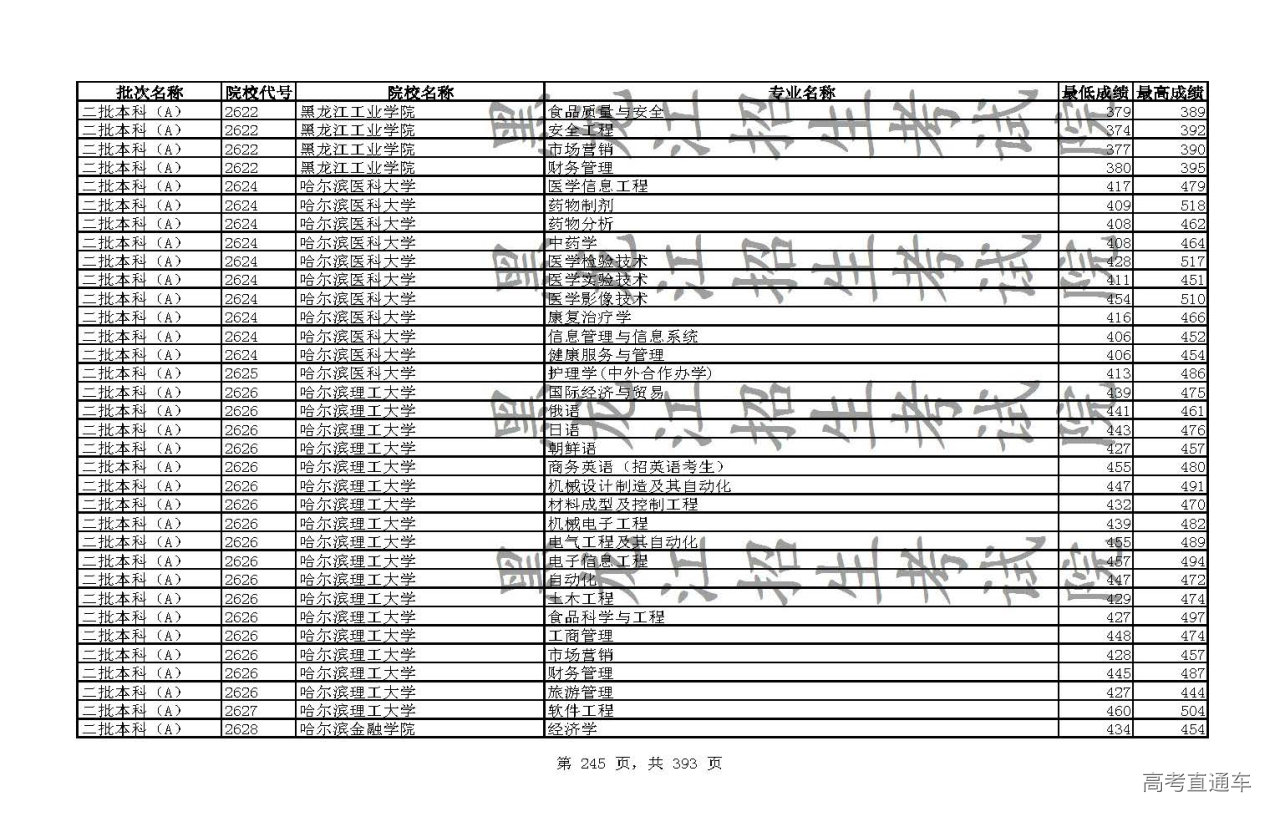 批次名称 院校代号 院校名称 专业名称 最低成绩 最高成绩
二批本科（A） 2622 黑龙江工业学院 食品质量与安全 379 389
二批本科（A） 2622 黑龙江工业学院 安全工程 374 392
二批本科（A） 2622 黑龙江工业学院 市场营销 377 390
二批本科（A） 2622 黑龙江工业学院 财务管理 380 395
二批本科（A） 2624 哈尔滨医科大学 医学信息工程 417 479
二批本科（A） 2624 哈尔滨医科大学 药物制剂 409 518
二批本科（A） 2624 哈尔滨医科大学 药物分析 408 462
二批本科（A） 2624 哈尔滨医科大学 中药学 408 464
二批本科（A） 2624 哈尔滨医科大学 医学检验技术 428 517
二批本科（A） 2624 哈尔滨医科大学 医学实验技术 411 451
二批本科（A） 2624 哈尔滨医科大学 医学影像技术 454 510
二批本科（A） 2624 哈尔滨医科大学 康复治疗学 416 466
二批本科（A） 2624 哈尔滨医科大学 信息管理与信息系统 406 452
二批本科（A） 2624 哈尔滨医科大学 健康服务与管理 406 454
二批本科（A） 2625 哈尔滨医科大学 护理学(中外合作办学) 413 486
二批本科（A） 2626 哈尔滨理工大学 国际经济与贸易 439 475
二批本科（A） 2626 哈尔滨理工大学 俄语 441 461
二批本科（A） 2626 哈尔滨理工大学 日语 443 476
二批本科（A） 2626 哈尔滨理工大学 朝鲜语 427 457
二批本科（A） 2626 哈尔滨理工大学 商务英语（招英语考生） 455 480
二批本科（A） 2626 哈尔滨理工大学 机械设计制造及其自动化 447 491
二批本科（A） 2626 哈尔滨理工大学 材料成型及控制工程 432 470
二批本科（A） 2626 哈尔滨理工大学 机械电子工程 439 482
二批本科（A） 2626 哈尔滨理工大学 电气工程及其自动化 455 489
二批本科（A） 2626 哈尔滨理工大学 电子信息工程 457 494
二批本科（A） 2626 哈尔滨理工大学 自动化 447 472
二批本科（A） 2626 哈尔滨理工大学 土木工程 429 474
二批本科（A） 2626 哈尔滨理工大学 食品科学与工程 427 497
二批本科（A） 2626 哈尔滨理工大学 工商管理 448 474
二批本科（A） 2626 哈尔滨理工大学 市场营销 428 457
二批本科（A） 2626 哈尔滨理工大学 财务管理 445 487
二批本科（A） 2626 哈尔滨理工大学 旅游管理 427 444
二批本科（A） 2627 哈尔滨理工大学 软件工程 460 504
二批本科（A） 2628 哈尔滨金融学院 经济学 434 454
黑龙江招生考试院
黑龙江招生考试院
黑龙江招生考试院
黑龙江招生考试院
第 245 页，共 393 页
高考直通车